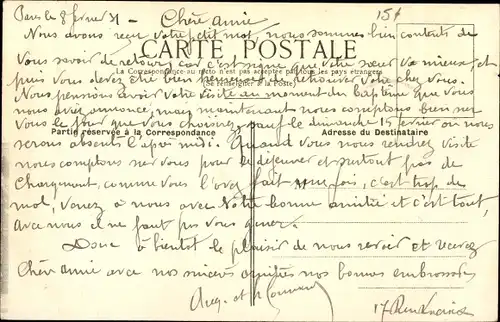 Paris le 8 février 31 - Chère amie 15+
Nous avons reçu votre petit mot, nous sommes bien contents de
CARTE POSTALE
vous savoir de retour car c'est signe que votre sœur va mieux, et
La Correspondance au recto n'est pas acceptée par tous les pays étrangers
(Se renseigner à la Poste)
puis vous devez être bien heureuse de retrouver votre chez vous.
Nous pensions avoir votre visite au moment du Baptême que vous
nous aviez annoncé, mais maintenant nous comptons bien sur
vous le jour que vous choisirez sauf le dimanche 15 février où nous
Partie réservée à la Correspondance Adresse du Destinataire
serons absents l'après midi. Quand vous nous rendrez visite
nous comptons sur vous pour le déjeuner et surtout pas de
chargement, comme vous l'avez fait une fois, c'est trop de
mal, venez à nous avec votre bonne amitié et c'est tout,
avec nous il ne faut pas vous gêner.
Donc à bientôt le plaisir de vous revoir et recevez
Chère amie avec nos sincères amitiés nos bonnes embrassades
17 Rue